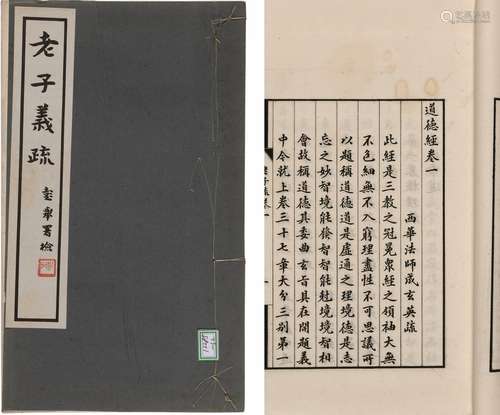 老子義疏
署檢
道德經卷一
西華法師成玄英疏
此經是三教之冠冕衆經之領袖大無
不包細無不入窮理盡性不可思議所
以題稱道德道是虛通之理境德是志
忘之妙智境能發智智能尅境境智相
會故稱道德其委曲玄旨具在開題義
中今就上卷三十七章大分三別第一